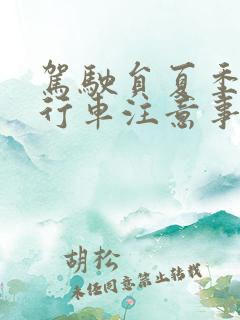 駕駛員夏季
行車注意事
胡松
未經同意禁止轉載